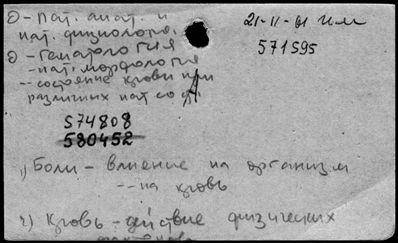 О - Пат. анат. и
пат. физиология.
О - Гематология
- пат. морфология
-- состояние крови при
различных пат сос
21-II-61 им
571595
574808
580452
1) Боли - влияние на организм
-- на кровь
2) Кровь - действие физических
факторов